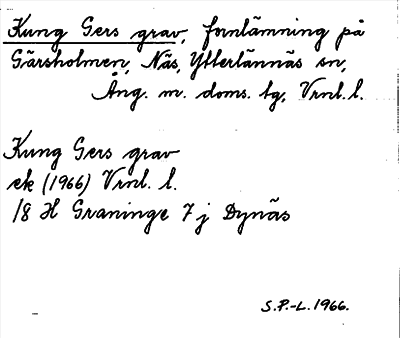 Kung Gers grav, fornlämning på
Gärsholmen, Näs, Ytterlännäs sn,
Ång. m. doms. tg, Vrnl. l.
Kung Gers grav
ek (1966) Vrnl. l.
18 H Graninge 7 j Dynäs
S.P.-L. 1966.